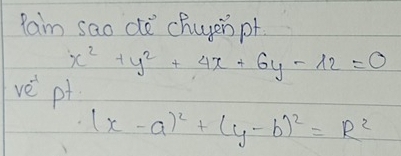 làm sao để chuyển pt.
x² + y² + 4x + 6y - 12 = 0
về pt.
(x - a)² + (y - b)² = R²